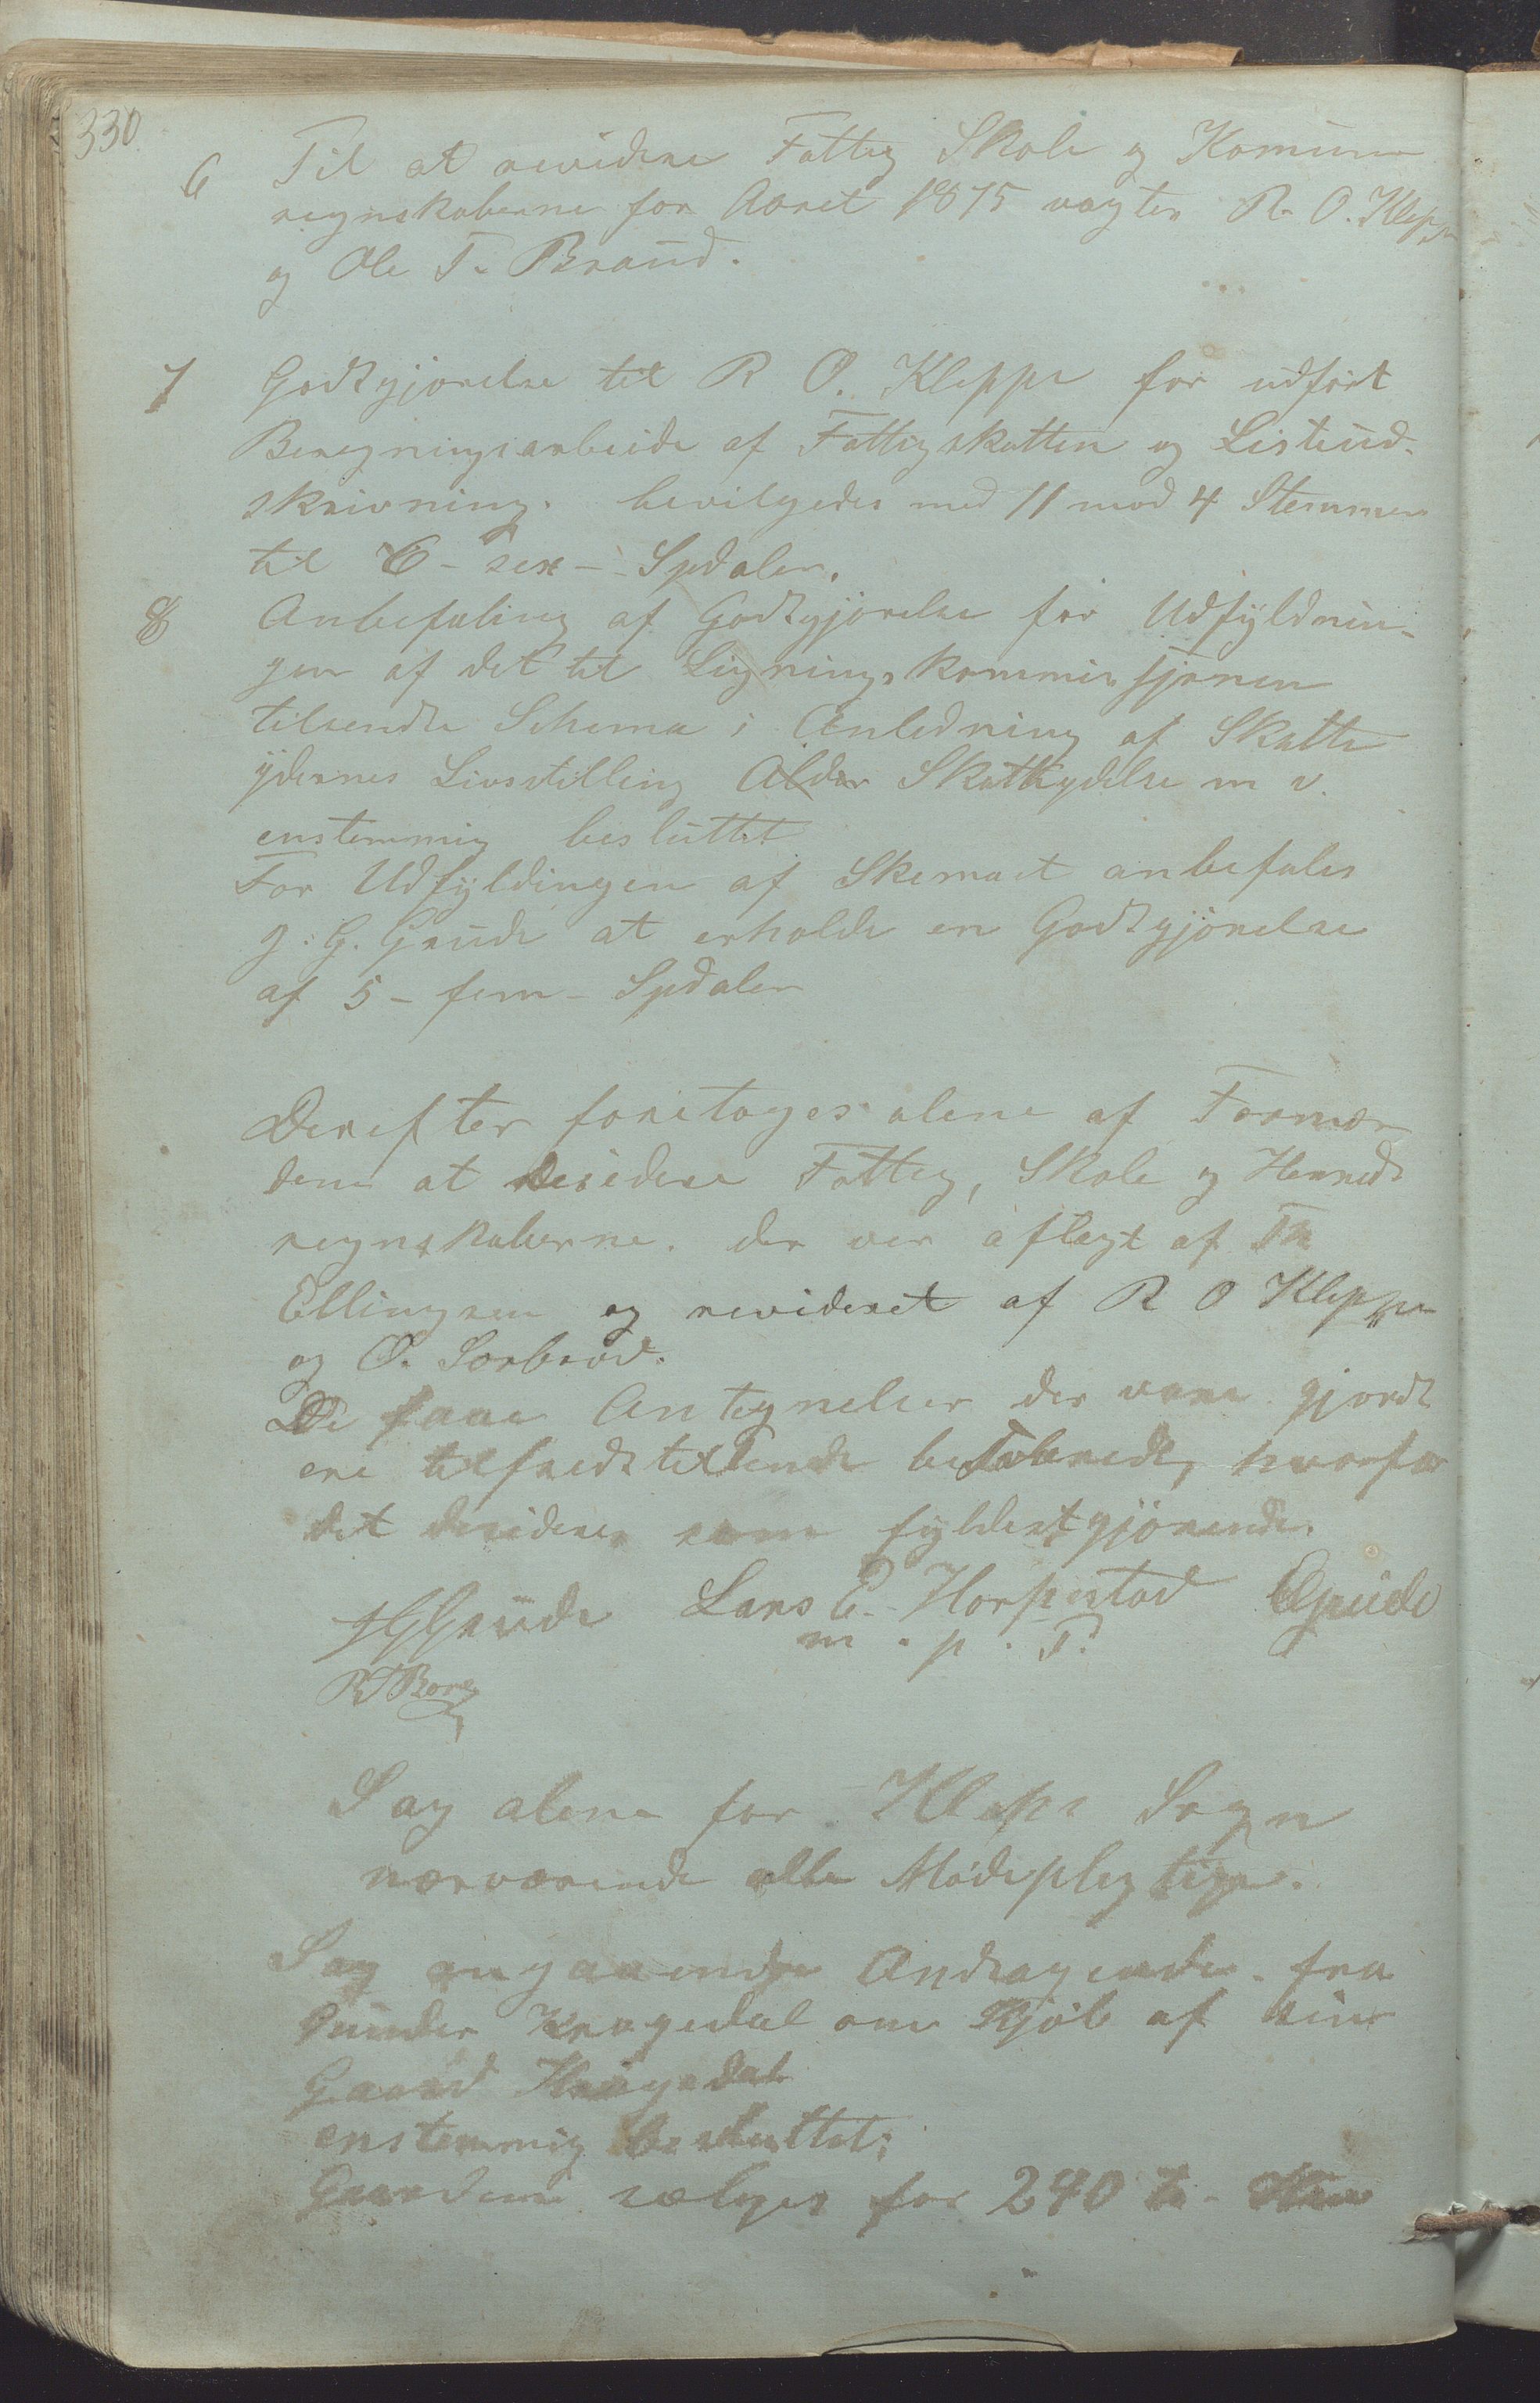 330
6 Til at revidere Fattig Skole og Komune
regnskaberne for Aaret 1875 vagtes R. O. Kleppe
og Ole T. Braud.
7 Godtgjørelse til R O. Kleppe for udført
Beregningsarbeide af Fattigskatten og Listeud-
skrivning. bevilgedes med 11 mod 4 Stemmer
til 6 - sex - Spdaler.
8 Anbefaling af Godtgjørelse for Udfyldnin-
gen af det til Ligningskommissjonen
tilsendte Schema i Anledning af Skatte
ydernes Livsstilling Alder Skatteydelse m v.
enstemmig besluttet
For Udfyldingen af Skemaet anbefales
J. G. Grude at erholde en Godtgjørelse
af 5 - fem - Spdaler
Derefter foretoges alene af Formæn
dene at desidere Fattig, Skole og Herreds
regnskaberne. der var aflagt af Th
Ellingsen og revideret af R O Kleppe
og O. Sorbrød.
De faae Antegnelser der vare gjordt
ere tilfredstillende besvarede, hvorfor
det desideres som fyldestgjørende.
JGGrude Lars E. Horpestad EGrude
m. p. P.
RTBore
Sag alene for Klepe Sogn
nærværende alle Mødepligtige.
Sag angaaende Andragende fra
Gunder Krogedal om Kjøb af sin
Gaard Krogedal
enstemmig besluttet;
Gaarden sælges for 240